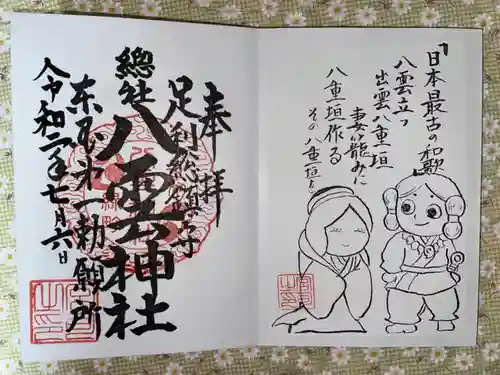 「日本最古の和歌」
八雲立つ
出雲八重垣
妻籠みに
八重垣作る
その八重垣を
奉拝
足利総鎮守
總社
八雲神社
勅願所
令和二年七月六日